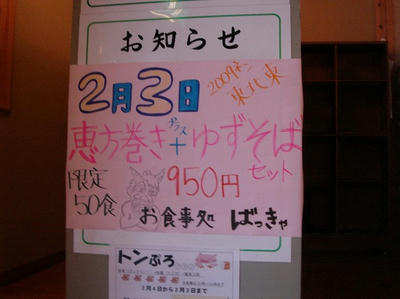 お知らせ
2月3日
2009年
東北東
恵方巻き+ゆずそば
プラス
セット
限定
50食
950円
お食事処 ばっきゃ
トンぷろ
2月4日から3月3日まで